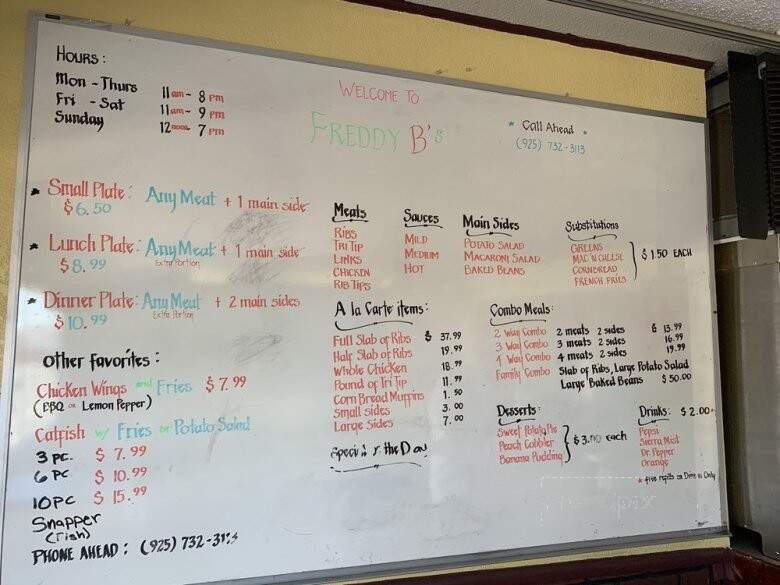 Hours:
Mon - Thurs 11am - 8 pm
Fri - Sat 11am - 9 pm
Sunday 12noon 7 pm
Welcome to
Freddy B's
* Call Ahead *
(925) 732-3113
* Small Plate: Any Meat + 1 main side
$6.50
* Lunch Plate: Any Meat + 1 main side
Extra Portion
$8.99
* Dinner Plate: Any Meat + 2 main sides
Extra Portion
$10.99
Other favorites:
Chicken Wings and Fries $7.99
(BBQ or Lemon Pepper)
Catfish w/ Fries or Potato Salad
3 pc. $7.99
6 pc $10.99
10 pc $15.99
Snapper
(Fish)
Phone Ahead: (925) 732-3113
Meats
Ribs
Tri Tip
Links
Chicken
Rib Tips
Sauces
Mild
Medium
Hot
Main Sides
Potato Salad
Macaroni Salad
Baked Beans
Substitutions
Greens
Mac n Cheese
Cornbread
French Fries
$1.50 each
A la Carte items:
Full Slab of Ribs $ 37.99
Half Slab of Ribs 19.99
Whole Chicken 18.99
Pound of Tri Tip 11.99
Corn Bread Muffins 1.50
Small sides 3.00
Large Sides 7.00
of the Day
Combo Meals:
2 Way Combo 2 meats 2 sides $ 13.99
3 Way Combo 3 meats 2 sides 16.99
4 Way Combo 4 meats 2 sides 19.99
Family Combo Slab of Ribs, Large Potato Salad
Large Baked Beans $50.00
Desserts:
Sweet Potato Pie
Peach Cobbler
Banana Pudding
$3.00 each
Drinks: $2.00
Pepsi
Sierra Mist
Dr. Pepper
Orange
* free refills on Dine in Only